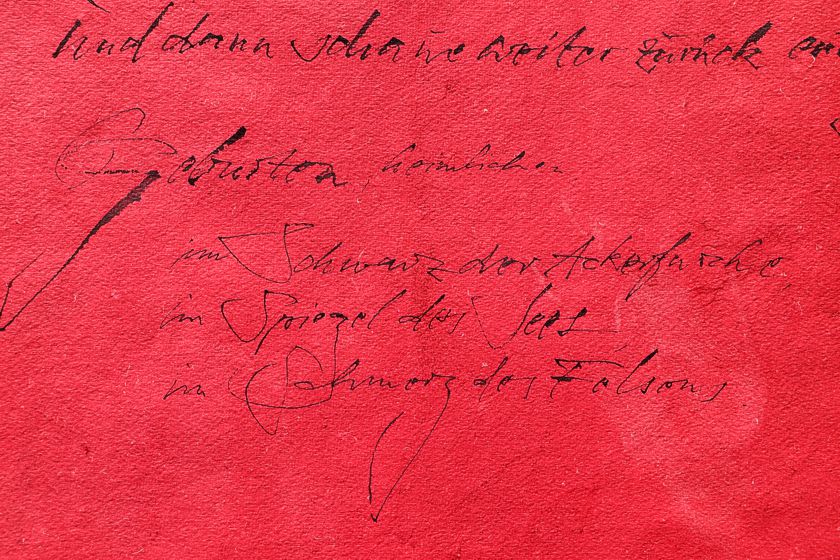 und dann schaue weiter zurück
Geburten, heimlicher
im Schwarz der Ackerfurche,
im Spiegel des Sees,
im Schmerz des Felsens